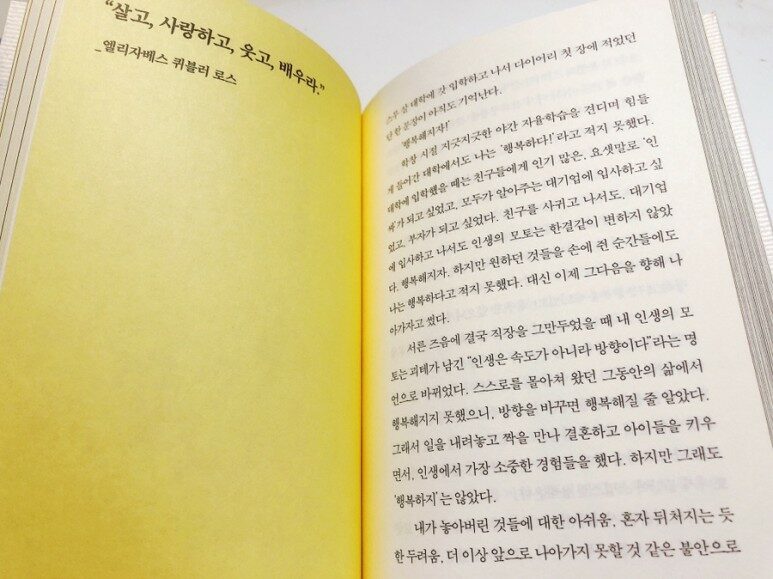 “살고, 사랑하고, 웃고, 배우라.”
_엘리자베스 퀴블러 로스
스무 살 대학에 갓 입학하고 나서 다이어리 첫 장에 적었던
단 한 문장이 아직도 기억난다.
‘행복해지자!’
학창 시절 지긋지긋한 야간 자율학습을 견디며 힘들
게 들어간 대학에서도 나는 ‘행복하다!’라고 적지 못했다.
대학에 입학했을 때는 친구들에게 인기 많은, 요샛말로 ‘인
싸’가 되고 싶었고, 모두가 알아주는 대기업에 입사하고 싶
었고, 부자가 되고 싶었다. 친구를 사귀고 나서도, 대기업
에 입사하고 나서도 인생의 모토는 한결같이 변하지 않았
다. 행복해지자. 하지만 원하던 것들을 손에 쥔 순간들에도
나는 행복하다고 적지 못했다. 대신 이제 그다음을 향해 나
아가자고 썼다.
서른 즈음에 결국 직장을 그만두었을 때 내 인생의 모
토는 괴테가 남긴 “인생은 속도가 아니라 방향이다”라는 명
언으로 바뀌었다. 스스로를 몰아쳐 왔던 그동안의 삶에서
행복해지지 못했으니, 방향을 바꾸면 행복해질 줄 알았다.
그래서 일을 내려놓고 짝을 만나 결혼하고 아이들을 키우
면서, 인생에서 가장 소중한 경험들을 했다. 하지만 그래도
‘행복하지’는 않았다.
내가 놓아버린 것들에 대한 아쉬움, 혼자 뒤처지는 듯
한 두려움, 더 이상 앞으로 나아가지 못할 것 같은 불안으로